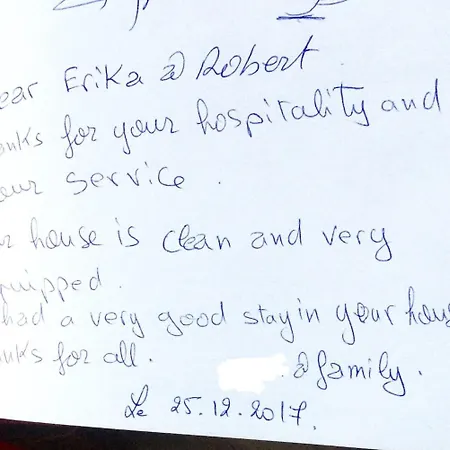 ear Erika @ Robert
anks for your hospitality and
our service.
r house is clean and very
quipped.
had a very good stay in your hous
anks for all.
@ family.
Le 25.12.2017.